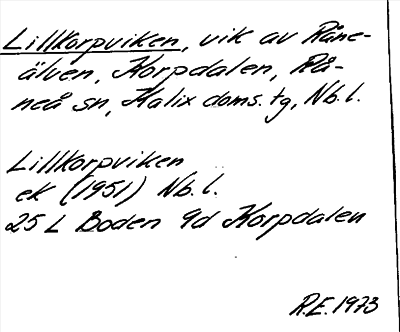 Lillkorpviken, vik av Råne-
älven, Korpdalen, Rå-
neå sn, Kalix doms. tg, Nb. l.
Lillkorpviken
ek (1951) Nb. l.
25 L Boden 9d Korpdalen
R.E. 1973